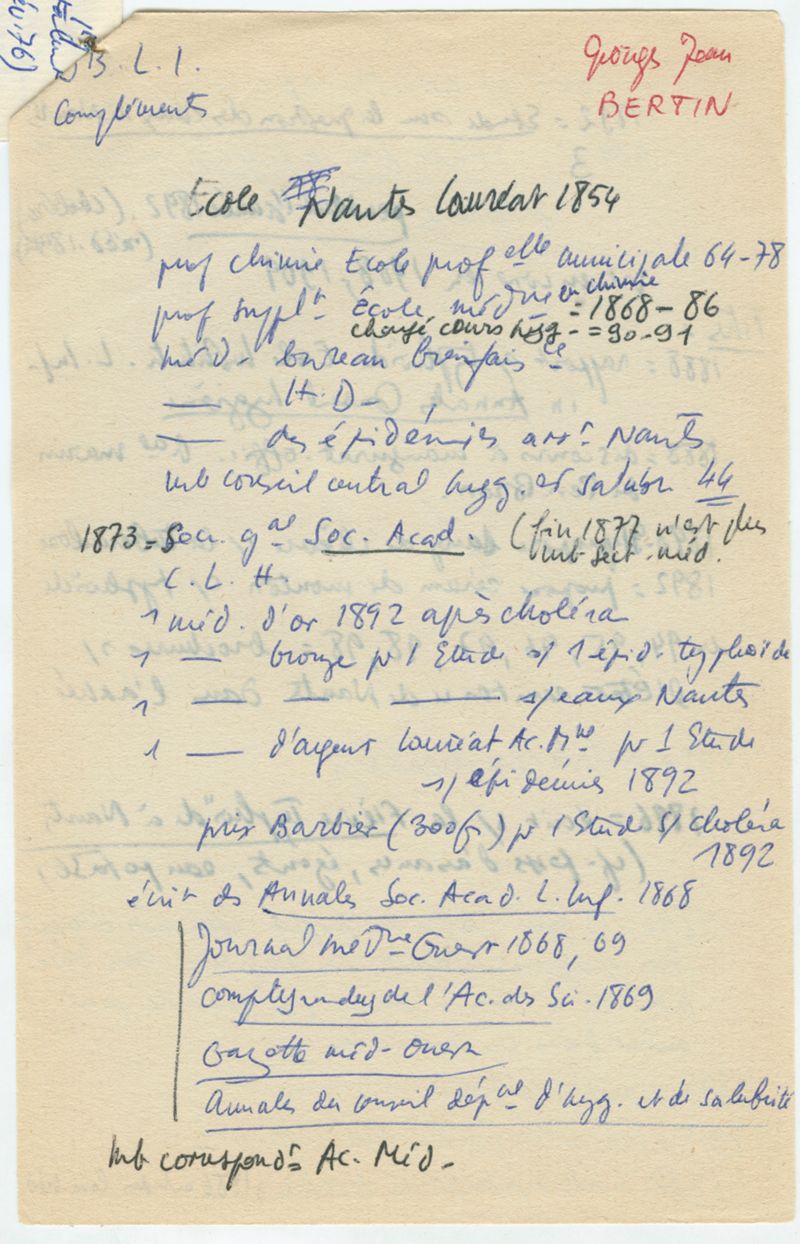 B. L. I.
Compléments
Georges Jean
BERTIN
Ecole Nantes lauréat 1854
prof chimie Ecole prof elle municipale 64-78
prof suppl t École médne en chimie = 1868-86
chargé cours hyg - = 90-91
méd - bureau bienfais ce
— H. D -
— des épidémies arr t Nantes
mb conseil central hyg. et salubr 44
1873 = Secr. g al Soc. Acad. (fin 1877 n'est plus
mb sect. méd.
C. L. H.
1 méd. d'or 1892 après choléra
1 — bronze pr 1 Etude s/ 1 épid. typhoïde
1 — — — s/ eaux Nantes
1 — d'argent lauréat Ac. Mne pr 1 Etude
s/ épidémies 1892
prix Barbier (300 fr) pr 1 Etude s/ choléra
1892
écrit ds Annales Soc. Acad. L. Inf. 1868
Journal médne Ouest 1868, 69
comptes rendus de l'Ac. des Sci. 1869
Gazette méd - Ouest
Annales du conseil dép al d'hyg. et de salubrité
mb correspond t Ac. Méd -